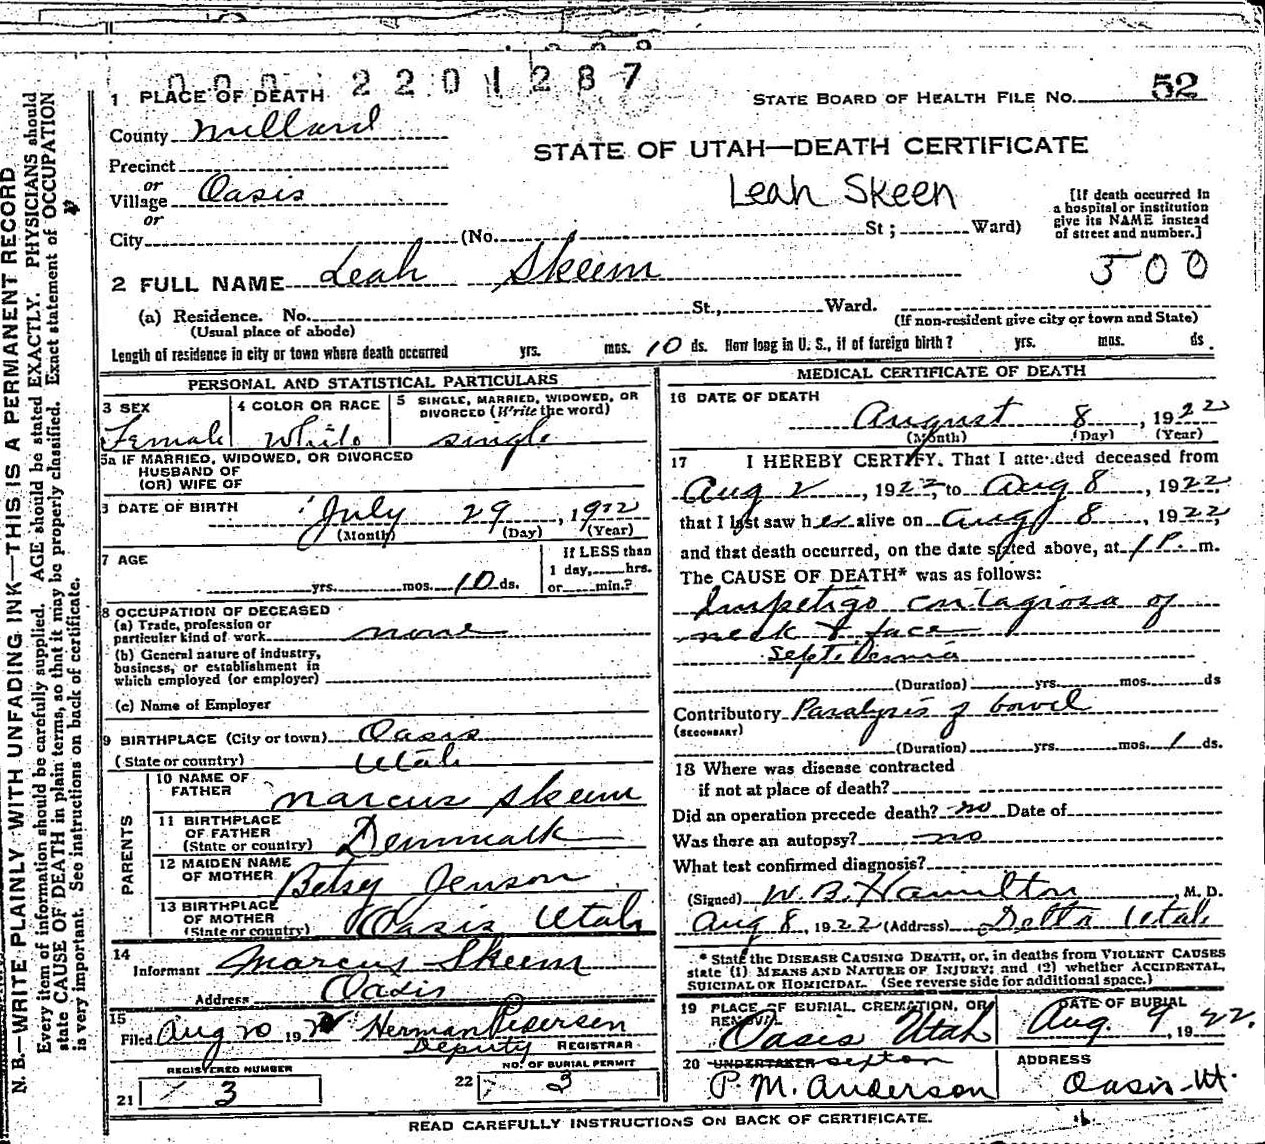 000 2201287
1 PLACE OF DEATH
STATE BOARD OF HEALTH FILE No. 52
County Millard
STATE OF UTAH—DEATH CERTIFICATE
Precinct
or
Village Oasis
Leah Skeen
[If death occurred in a hospital or institution give its NAME instead of street and number.]
or
City (No. St; Ward)
500
2 FULL NAME Leah Skeem
(a) Residence. No. St., Ward.
(Usual place of abode) (If non-resident give city or town and State)
Length of residence in city or town where death occurred yrs. mos. 10 ds. How long in U. S., if of foreign birth? yrs. mos. ds.
PERSONAL AND STATISTICAL PARTICULARS
3 SEX 4 COLOR OR RACE 5 SINGLE, MARRIED, WIDOWED, OR
DIVORCED (Write the word)
Female White single
5a IF MARRIED, WIDOWED, OR DIVORCED
HUSBAND OF
(OR) WIFE OF
DATE OF BIRTH
July 29, 1922
(Month) (Day) (Year)
7 AGE If LESS than
1 day, hrs.
yrs. mos. 10 ds. or min.?
8 OCCUPATION OF DECEASED
(a) Trade, profession or
particular kind of work none
(b) General nature of industry,
business, or establishment in
which employed (or employer)
(c) Name of Employer
9 BIRTHPLACE (City or town) Oasis
(State or country) Utah
PARENTS
10 NAME OF
FATHER Marcus Skeem
11 BIRTHPLACE
OF FATHER
(State or country) Denmark
12 MAIDEN NAME
OF MOTHER Betsy Jenson
13 BIRTHPLACE
OF MOTHER
(State or country) Oasis Utah
14
Informant Marcus Skeem
Address Oasis
15
Filed Aug 20 192 Herman Pedersen
Deputy REGISTRAR
REGISTERED NUMBER NO. OF BURIAL PERMIT
21 3 22 3
MEDICAL CERTIFICATE OF DEATH
16 DATE OF DEATH
August 8, 1922
(Month) (Day) (Year)
17 I HEREBY CERTIFY, That I attended deceased from
Aug 2, 1922, to Aug 8, 1922
that I last saw her alive on Aug 8, 1922,
and that death occurred, on the date stated above, at 1 P. m.
The CAUSE OF DEATH* was as follows:
Impetigo contagiosa of
neck & face
Septicemia
(Duration) yrs. mos. ds
Contributory Paralysis of bowel
(SECONDARY)
(Duration) yrs. mos. 1 ds.
18 Where was disease contracted
if not at place of death?
Did an operation precede death? no Date of
Was there an autopsy? no
What test confirmed diagnosis?
(Signed) W. B. Hamilton, M. D.
Aug 8, 1922 (Address) Delta Utah
* State the DISEASE CAUSING DEATH, or, in deaths from VIOLENT CAUSES
state (1) MEANS AND NATURE OF INJURY; and (2) whether ACCIDENTAL,
SUICIDAL OR HOMICIDAL. (See reverse side for additional space.)
19 PLACE OF BURIAL, CREMATION, OR
REMOVAL DATE OF BURIAL
Oasis Utah Aug. 9, 1922.
20 UNDERTAKER sexton ADDRESS
P. M. Anderson Oasis Ut.
READ CAREFULLY INSTRUCTIONS ON BACK OF CERTIFICATE.
N. B.—WRITE PLAINLY WITH UNFADING INK—THIS IS A PERMANENT RECORD
Every item of information should be carefully supplied. AGE should be stated EXACTLY. PHYSICIANS should
state CAUSE OF DEATH in plain terms, so that it may be properly classified. Exact statement of OCCUPATION
is very important. See instructions on back of certificate.